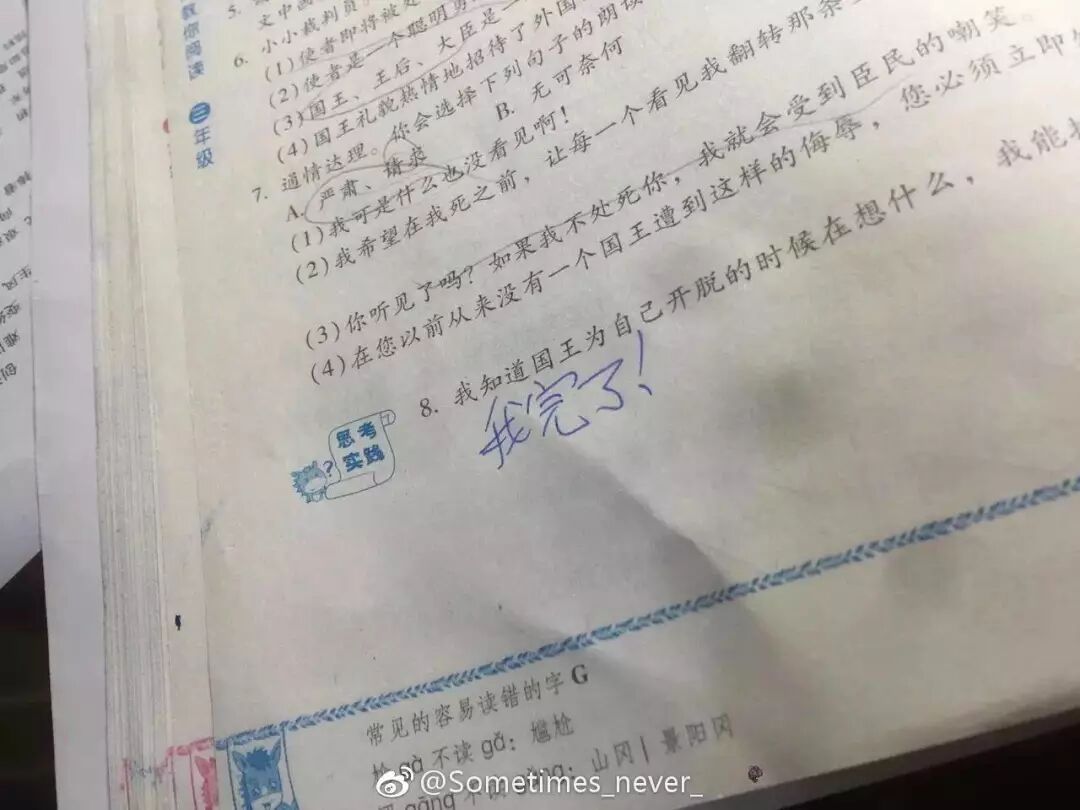 教你阅读 三年级
5.
文中画
6. 小小裁判员。
(1)使者即将被处
(2)使者是一个聪明勇
(3)国王、王后、大臣是一
(4)国王礼貌热情地招待了外国
7. 通情达理。你会选择下列句子的朗读
A. 严肃、请求 B. 无可奈何
(1)我可是什么也没看见啊!
(2)我希望在我死之前,让每一个看见我翻转那条
(3)你听见了吗?如果我不处死你,我就会受到臣民的嘲笑。
(4)在您以前从来没有一个国王遭到这样的侮辱,您必须立即
8. 我知道国王为自己开脱的时候在想什么,我能
我完了!
思考
实践
?
常见的容易读错的字 G
尬 gà 不读 gǎ:尴尬
gāng 不读 gǎng:山冈 | 景阳冈
@Sometimes_never_